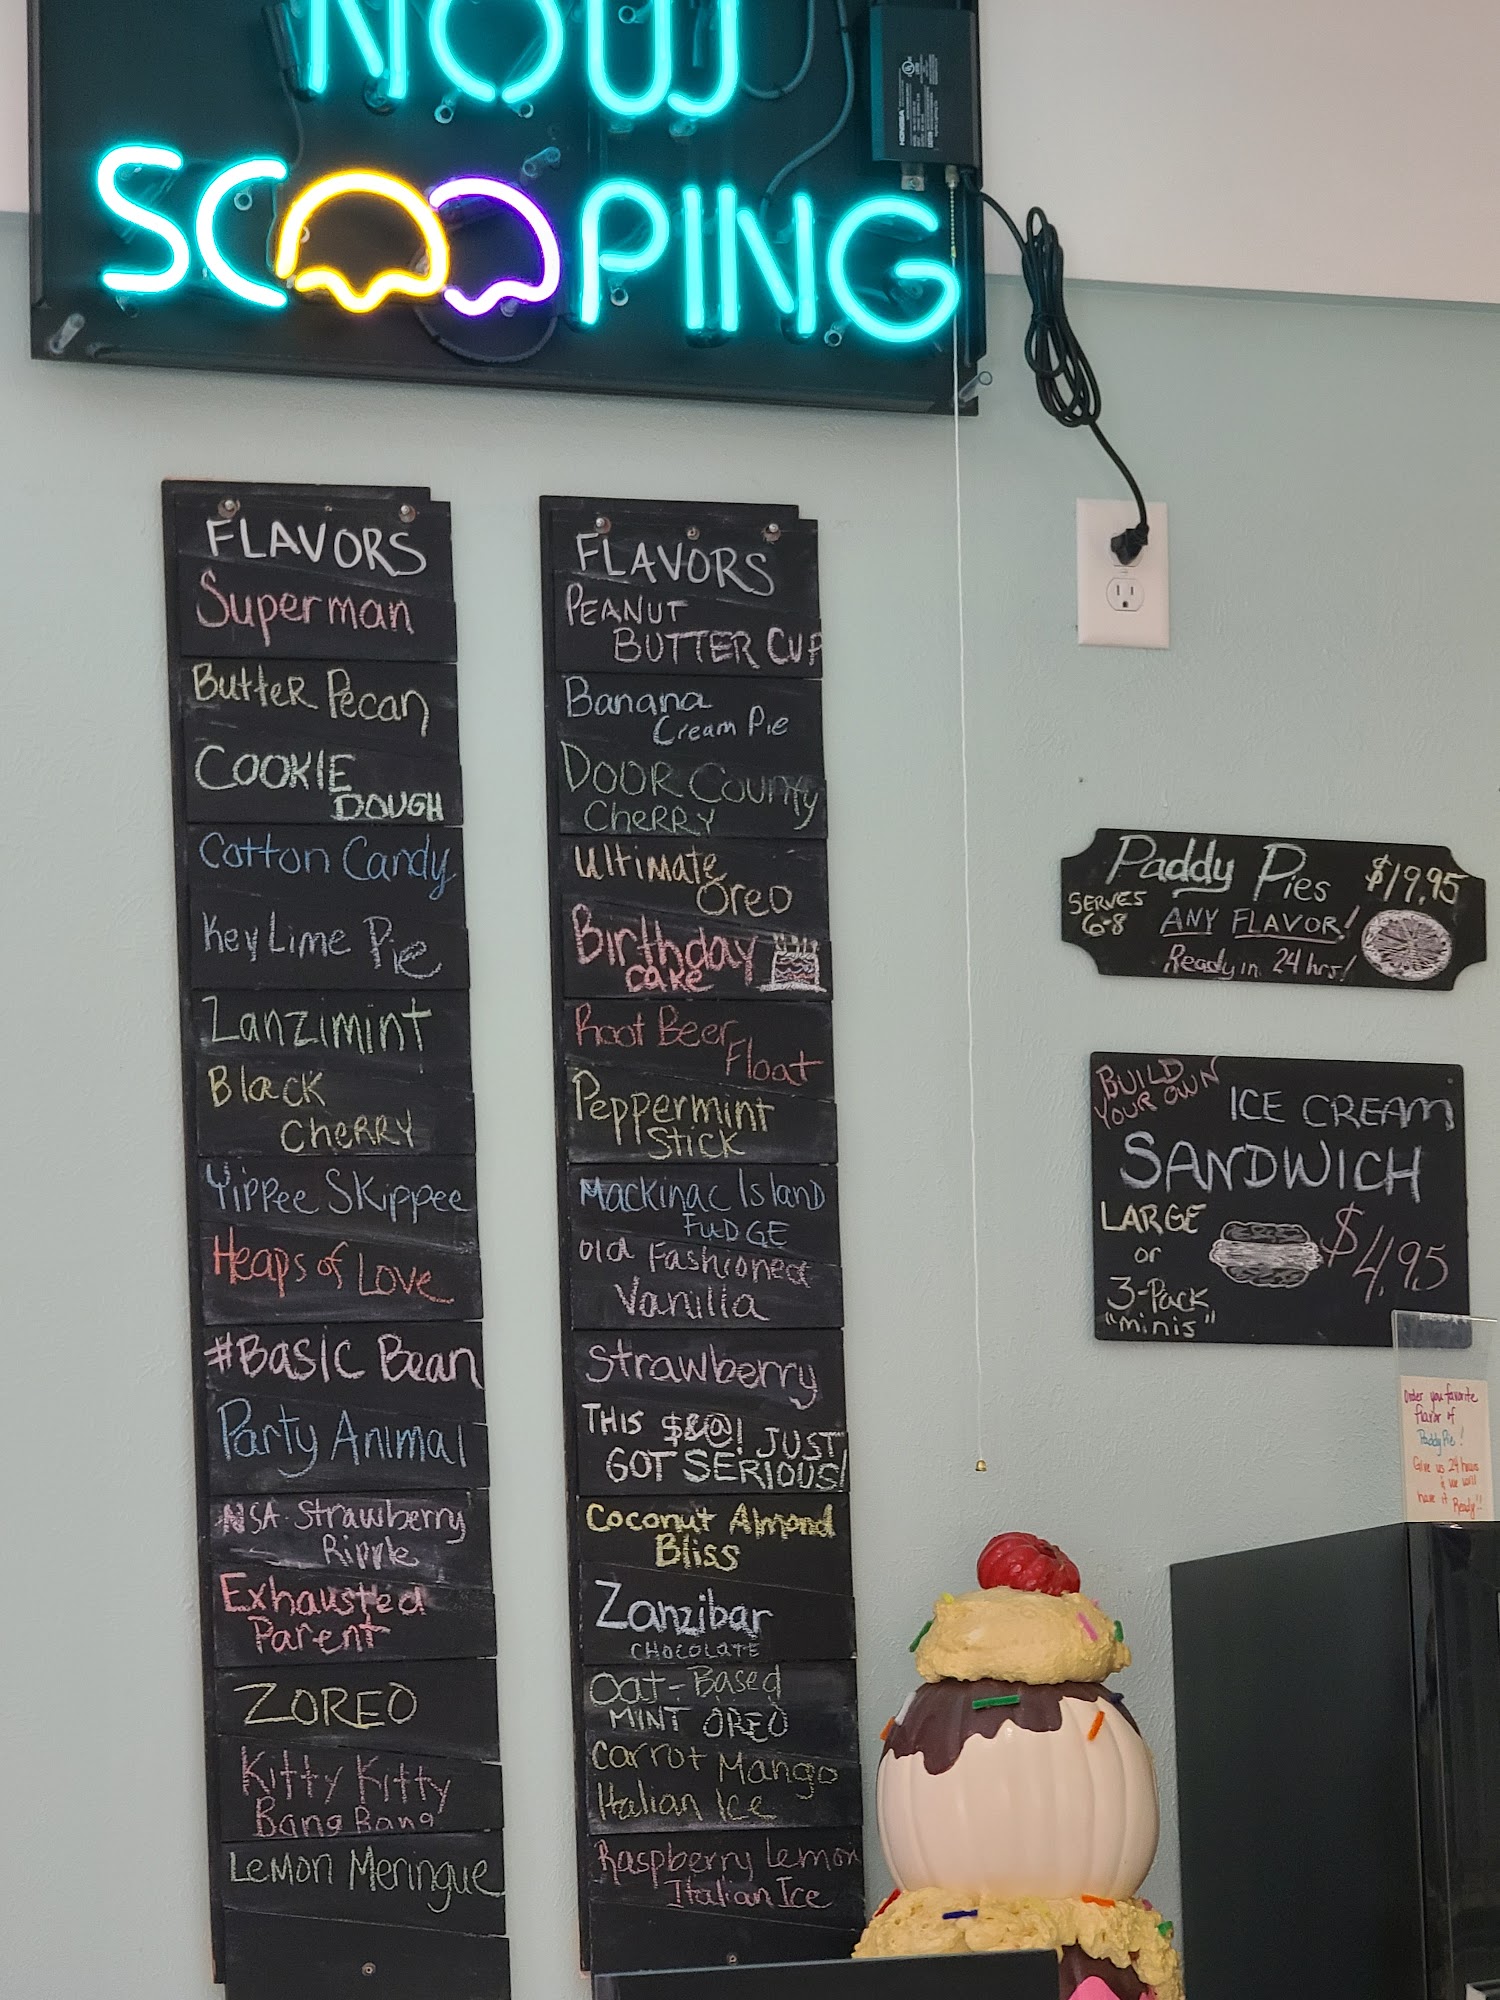 NOW
SCOOPING
FLAVORS
Superman
Butter Pecan
COOKIE
DOUGH
Cotton Candy
Key Lime Pie
Zanzimint
Black
Cherry
Yippee Skippee
Heaps of Love
#Basic Bean
Party Animal
NSA Strawberry
Ripple
Exhausted
Parent
ZOREO
Kitty Kitty
Bang Bang
Lemon Meringue
FLAVORS
PEANUT
BUTTER CUP
Banana
Cream Pie
DOOR County
CHERRY
Ultimate
Oreo
Birthday
Cake
Root Beer
Float
Peppermint
STICK
Mackinac Island
FUDGE
Old Fashioned
Vanilla
Strawberry
THIS $&@! JUST
GOT SERIOUS!
Coconut Almond
Bliss
Zanzibar
CHOCOLATE
Oat-Based
MINT OREO
Carrot Mango
Italian Ice
Raspberry Lemon
Italian Ice
Paddy Pies $19.95
SERVES
6-8
ANY FLAVOR!
Ready in 24 hrs!
BUILD
YOUR OWN
ICE CREAM
SANDWICH
LARGE
or
3-Pack
"minis"
$4.95
Order you favorite
flavor of
Paddy Pie!
Give us 24 hours
& we will
have it Ready!!